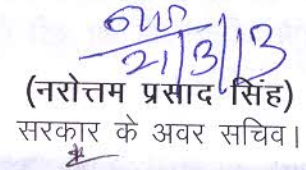 21/3/13
(नरोत्तम प्रसाद सिंह)
सरकार के अवर सचिव।